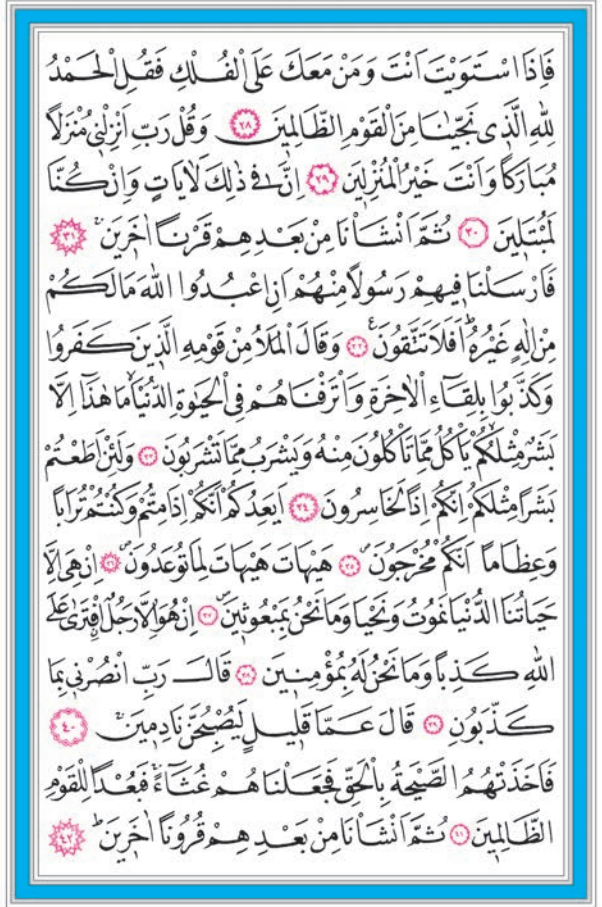 فَاِذَا اسْتَوَيْتَ اَنْتَ وَمَنْ مَعَكَ عَلَى الْفُلْكِ فَقُلِ الْحَمْدُ
لِلّٰهِ الَّذ۪ي نَجّٰينَا مِنَ الْقَوْمِ الظَّالِم۪ينَ ﴿٢٨﴾ وَقُلْ رَبِّ اَنْزِلْن۪ي مُنْزَلاً
مُبَارَكاً وَاَنْتَ خَيْرُ الْمُنْزِل۪ينَ ﴿٢٩﴾ اِنَّ ف۪ي ذٰلِكَ لَاٰيَاتٍ وَاِنْ كُنَّا
لَمُبْتَل۪ينَ ﴿٣٠﴾ ثُمَّ اَنْشَأْنَا مِنْ بَعْدِهِمْ قَرْناً اٰخَر۪ينَۚ ﴿٣١﴾
فَاَرْسَلْنَا ف۪يهِمْ رَسُولاً مِنْهُمْ اَنِ اعْبُدُوا اللّٰهَ مَا لَكُمْ
مِنْ اِلٰهٍ غَيْرُهُۜ اَفَلَا تَتَّقُونَ۟ ﴿٣٢﴾ وَقَالَ الْمَلَأُ مِنْ قَوْمِهِ الَّذ۪ينَ كَفَرُوا
وَكَذَّبُوا بِلِقَٓاءِ الْاٰخِرَةِ وَاَتْرَفْنَاهُمْ فِي الْحَيٰوةِ الدُّنْيَاۙ مَا هٰذَٓا اِلَّا
بَشَرٌ مِثْلُكُمْۙ يَأْكُلُ مِمَّا تَأْكُلُونَ مِنْهُ وَيَشْرَبُ مِمَّا تَشْرَبُونَ ﴿٣٣﴾ وَلَئِنْ اَطَعْتُمْ
بَشَراً مِثْلَكُمْ اِنَّكُمْ اِذاً لَخَاسِرُونَ ﴿٣٤﴾ اَيَعِدُكُمْ اَنَّكُمْ اِذَا مِتُّمْ وَكُنْتُمْ تُرَاباً
وَعِظَاماً اَنَّكُمْ مُخْرَجُونَۖ ﴿٣٥﴾ هَيْهَاتَ هَيْهَاتَ لِمَا تُوعَدُونَۖ ﴿٣٦﴾ اِنْ هِيَ اِلَّا
حَيَاتُنَا الدُّنْيَا نَمُوتُ وَنَحْيَا وَمَا نَحْنُ بِمَبْعُوث۪ينَۖ ﴿٣٧﴾ اِنْ هُوَ اِلَّا رَجُلٌۨ افْتَرٰى عَلَى
اللّٰهِ كَذِباً وَمَا نَحْنُ لَهُ بِمُؤْمِن۪ينَ ﴿٣٨﴾ قَالَ رَبِّ انْصُرْن۪ي بِمَا
كَذَّبُونِ ﴿٣٩﴾ قَالَ عَمَّا قَل۪يلٍ لَيُصْبِحُنَّ نَادِم۪ينَۚ ﴿٤٠﴾
فَاَخَذَتْهُمُ الصَّيْحَةُ بِالْحَقِّ فَجَعَلْنَاهُمْ غُثَٓاءًۚ فَبُعْداً لِلْقَوْمِ
الظَّالِم۪ينَ ﴿٤١﴾ ثُمَّ اَنْشَأْنَا مِنْ بَعْدِهِمْ قُرُوناً اٰخَر۪ينَۜ ﴿٤٢﴾